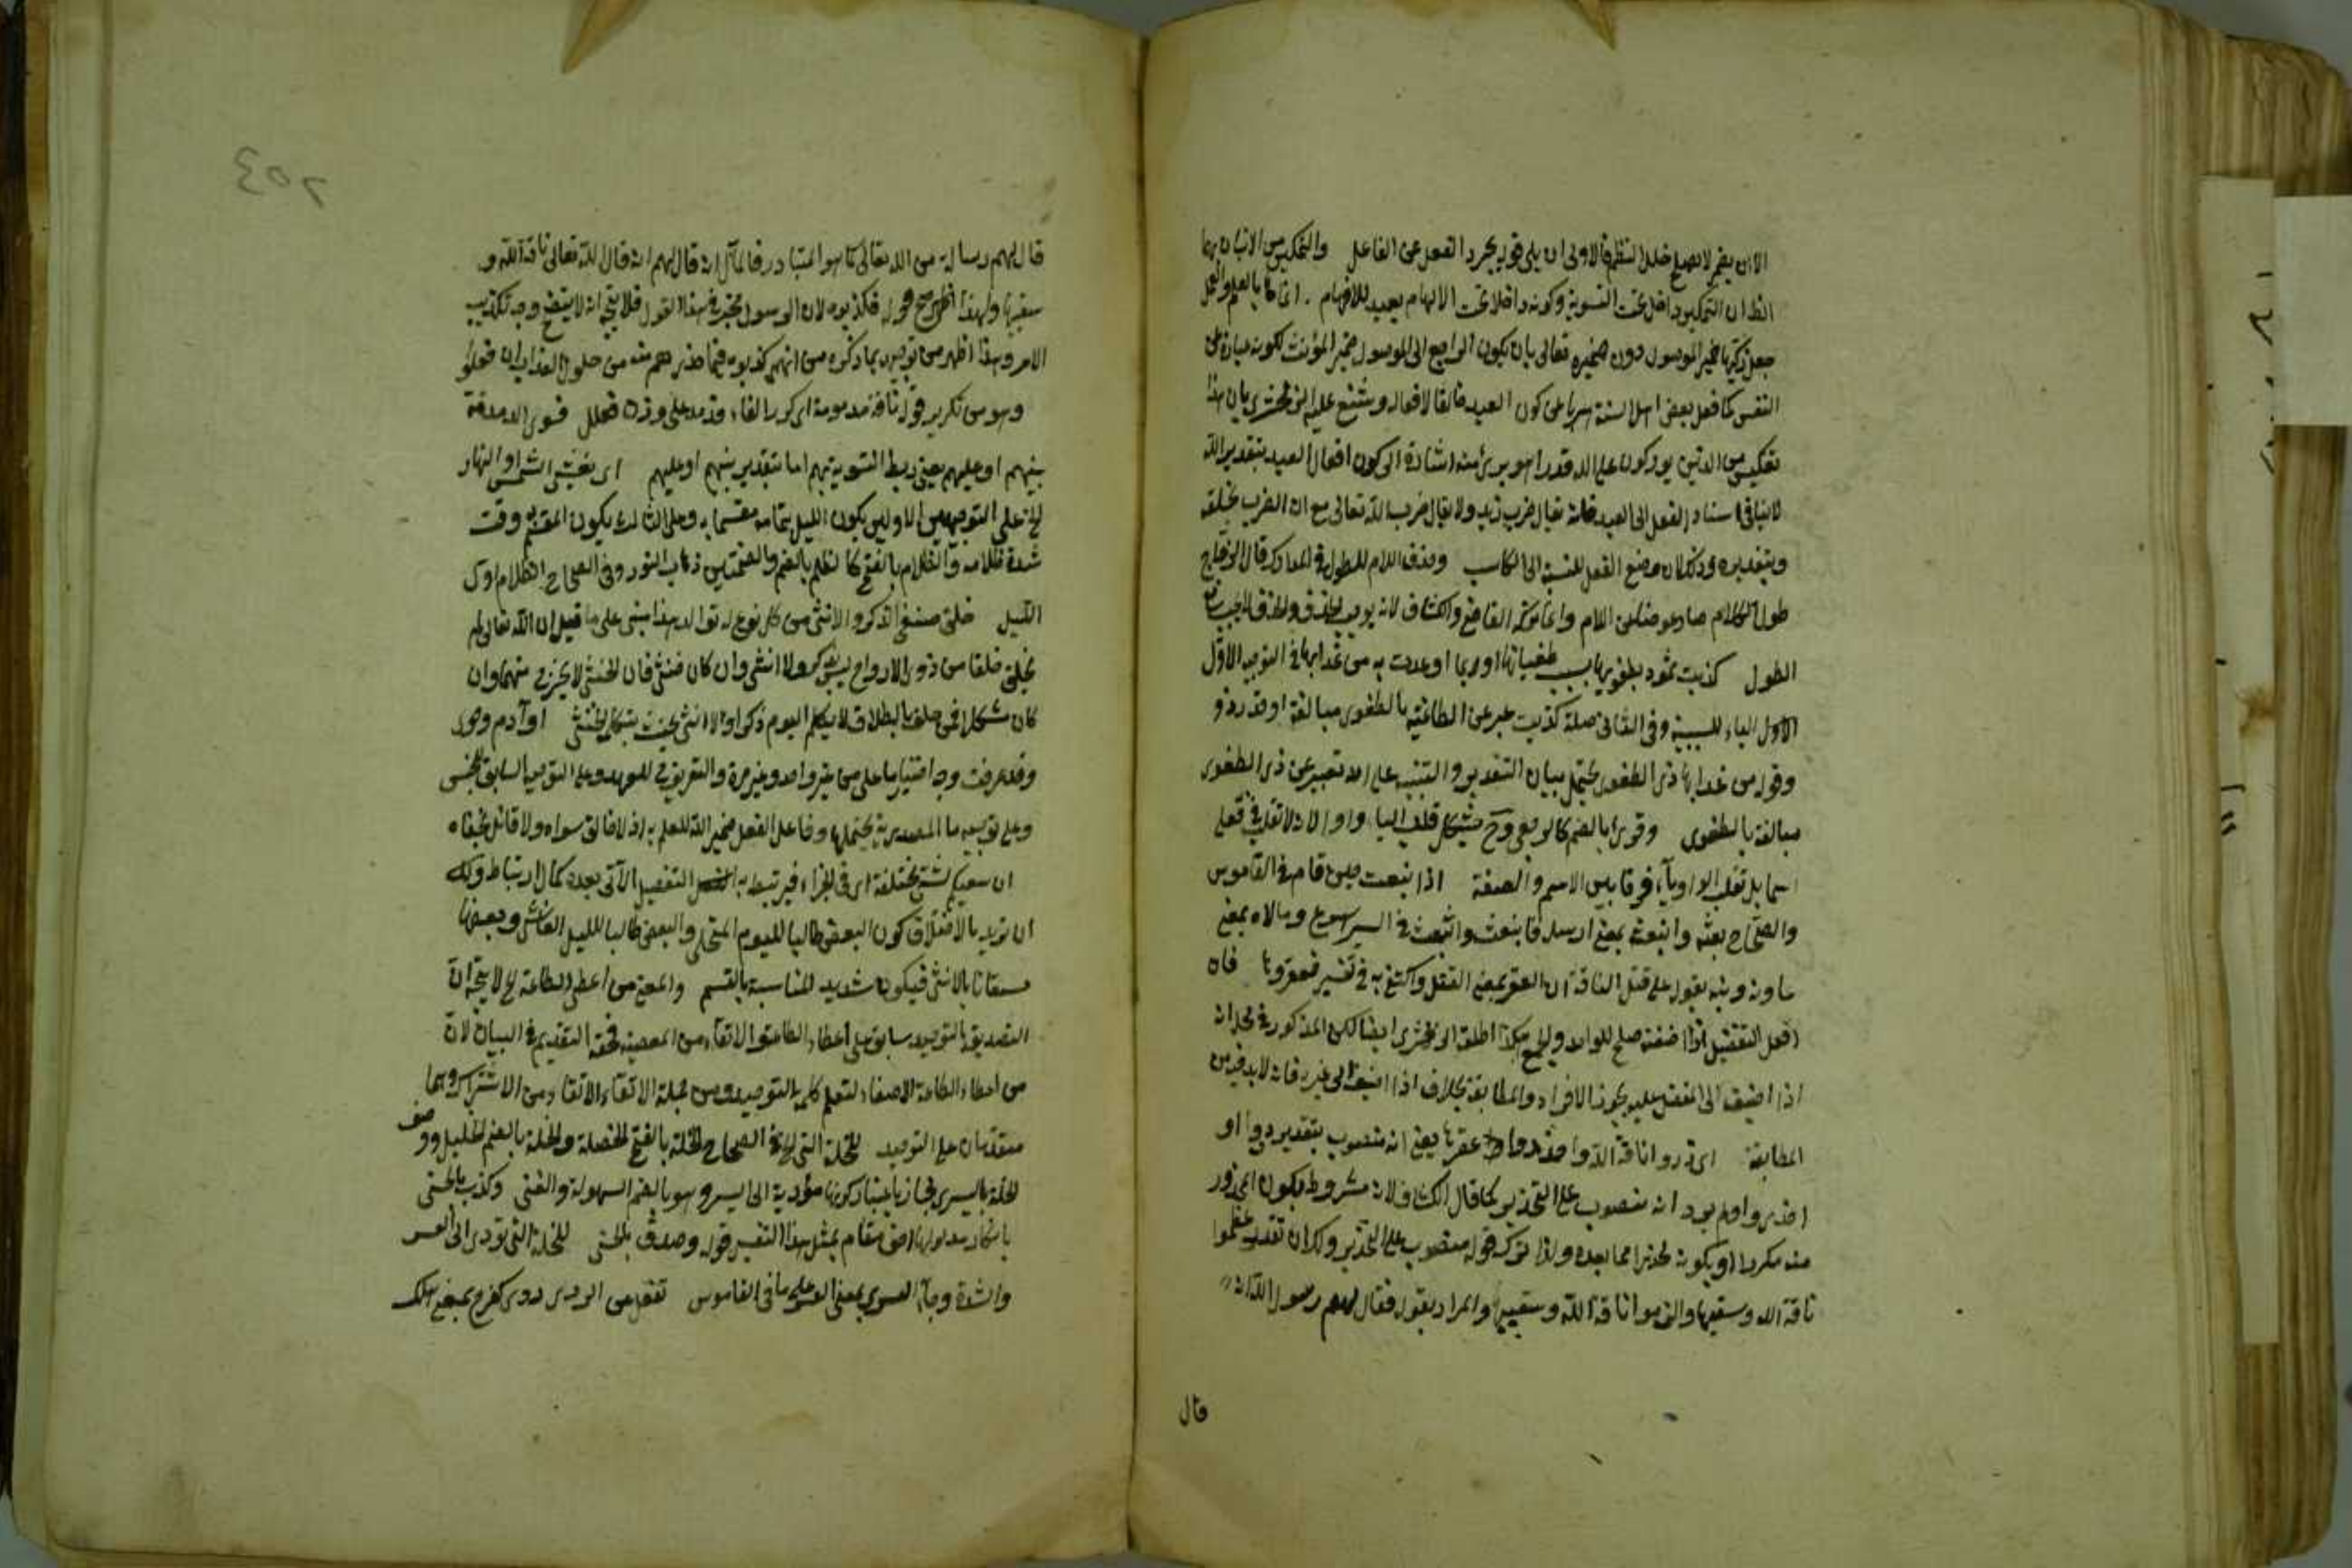 الا ان يضمر لا يصلح خلل النظم فالاولى ان يلي قوله بجرد الفعل عن الفاعل والتمكين من الاتيان بهما
الظ ان التمكين داخل تحت التسوية وكونه داخلا تحت الالهام بعيد للافهام انماها بالعلم والعمل
جعل زكيها ضمير الموصول دون ضميره تعالى بان يكون الراجع الى الموصول ضمير المؤنث لكونه عبارة عن
النفس كما فعل بعض اهل السنة هربا من كون العبد خالقا لافعاله وشنع عليه الزمخشري بان هذا
تعكيس من الذين يوركون على الله قدرا هو برئ منه اشارة الى كون افعال العبد بتقدير الله
لا ينافي اسناد الفعل الى العبد فانه يقال ضرب زيد ولا يقال ضرب الله تعالى مع ان الضرب بخلقه
وبتقديره وذلك لان وضع الفعل للنسبة الى الكاسب وحذف اللام للطول في المدارك قال الزجاج
طول الكلام صار عوضا عن اللام وانما تركه القاضي والكشاف لانه يوجب الحذف والحذف لا يجب مع
الطول كذبت ثمود بطغويها بسبب طغيانها او بما اوعدت به من عذابها في التوجيه الاول
الاول الباء للسببية وفي الثاني صلة كذبت عبر عن الطاغية بالطغوى مبالغة او قدر ذو
وقوله من عذابها ذي الطغوى يحتمل بيان التقدير والتنبيه على انه تعبير عن ذي الطغوى
مبالغة بالطغوى وقرئ بالضم كالرجعى وح يشكل قلب الياء واوا لانه لا تقلب في فعلى
اسما بل تقلب الواو ياء فرقا بين الاسم والصفة اذ انبعث حين قام في القاموس
والصحاح بعثه وابتعثه بمعنى ارسله فانبعث وانبعث في السير اسرع ومالاه بمعنى
عاونه ونبه بقوله على قتل الناقة ان العقر بمعنى القتل واكتفى به في تفسير فعقروها فان
افعل التفضيل اذا اضفته صلح للواحد والجمع هكذا اطلقه الزمخشري ايضا لكن المذكور في محله انه
اذا اضيف الى المفضل عليه يجوز الافراد والمطابقة بخلاف اذا اضيف الى غيره فانه لابد فيه من
المطابقة اي ذروا ناقة الله واحذروا عقرها يعني انه منصوب بتقدير ذروا او
احذروا ولم يرد انه منصوب على التحذير كما قال الكشاف لانه مشروط بكون المحذور
منه مكررا او يكون محذرا مما بعده ولذا ترك قوله منصوب على التحذير ولك ان تقدر عظموا
ناقة الله وسقيها والزموا ناقة الله وسقيها والمراد بقوله فقال لهم رسول الله انه
قال
٢٥٤
قال لهم رسالة من الله تعالى كما هو المتبادر فالمآل انه قال لهم انه قال الله تعالى ناقة الله و
سقيها ولهذا اظهر صح قوله فكذبوه لان الرسول مخبر في هذا القول فلا يتجه انه لا يتضح وجه تكذيب
الامر وهذا اظهر من توجيهه بما ذكره من انهم كذبوه فيما حذرهم منه من حلول العذاب ان فعلوا
وهو من تكرير قولهم ناقة مدمومة اي كرر الفاء فدمدم على وزن فعلل فسوى الدمدمة
بينهم او عليهم يعني ربط التسوية بهم اما بتقدير بينهم او عليهم اي يغشى الشمس او النهار
الخ على التوجيهين الاولين يكون الليل بتمامه مقسما به وعلى الثالث يكون المقسم به وقت
شدة ظلامه والظلام بالفتح كالظلم بالضم والضمتين ذهاب النور وفي الصحاح الظلام اول
الليل خلق صنفي الذكر والانثى من كل نوع له توالد هذا مبني على ما قيل ان الله تعالى لم
يخلق خلقا من ذوي الارواح ليس بذكر ولا انثى وان كان خنثى فان الخنثى لا يخرج منهما وان
كان مشكلا في حلف بالطلاق لا يكلم اليوم ذكرا ولا انثى يحنث بتكلم الخنثى او آدم وحوى
وقد عرفت وجه اختيار ما على من غير واحد وغير مرة والتعريف للعهد وعلى التوجيه السابق للجنس
وعلى توجيه ما المصدرية يحتملها وفاعل الفعل ضمير الله للعلم به اذ لا خالق سواه ولا قائل بخفاه
ان سعيكم لشتى مختلفة اي في الجزاء فيرتبط به التفصيل الآتي بعده كمال ارتباط ولك
ان تريد بالاختلاف كون البعض طالبا لليوم المتجلي والبعض طالبا لليل الغاشي وبعضها
مستعانا بالانثى فيكون شديد المناسبة بالقسم والمعنى من اعطى الطاعة الخ لا يتجه ان
التصديق بالتوحيد سابق على اعطاء الطاعة والاتقاء من المعصية فحقه التقديم في البيان لان
من اعطاء الطاعة الاصغاء لتعلم كلمة التوحيد ومن جملة الاتقاء الاتقاء من الاشراك وهما
متقدمان على التوحيد للخلة التي الخ في الصحاح الخلة بالفتح الخصلة والخلة بالضم الخليل ووصف
الخلة باليسرى مجاز باعتبار كونها مؤدية الى اليسر وهو بالضم السهولة والغنى وكذب بالحسنى
بانكار مدلولها اخر مقام بمثل هذا التفسير قوله وصدق بالحسنى للخلة التي تؤدي الى العسر
والشدة وجاء العسرى بمعنى العسر على ما في القاموس تفعل من الردى ردي كفرح بمعنى هلك